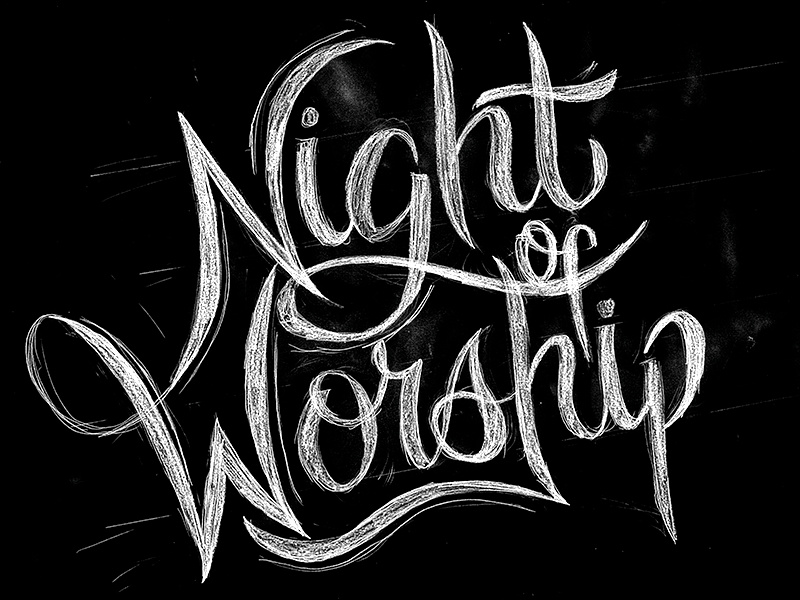 Night
of
Worship